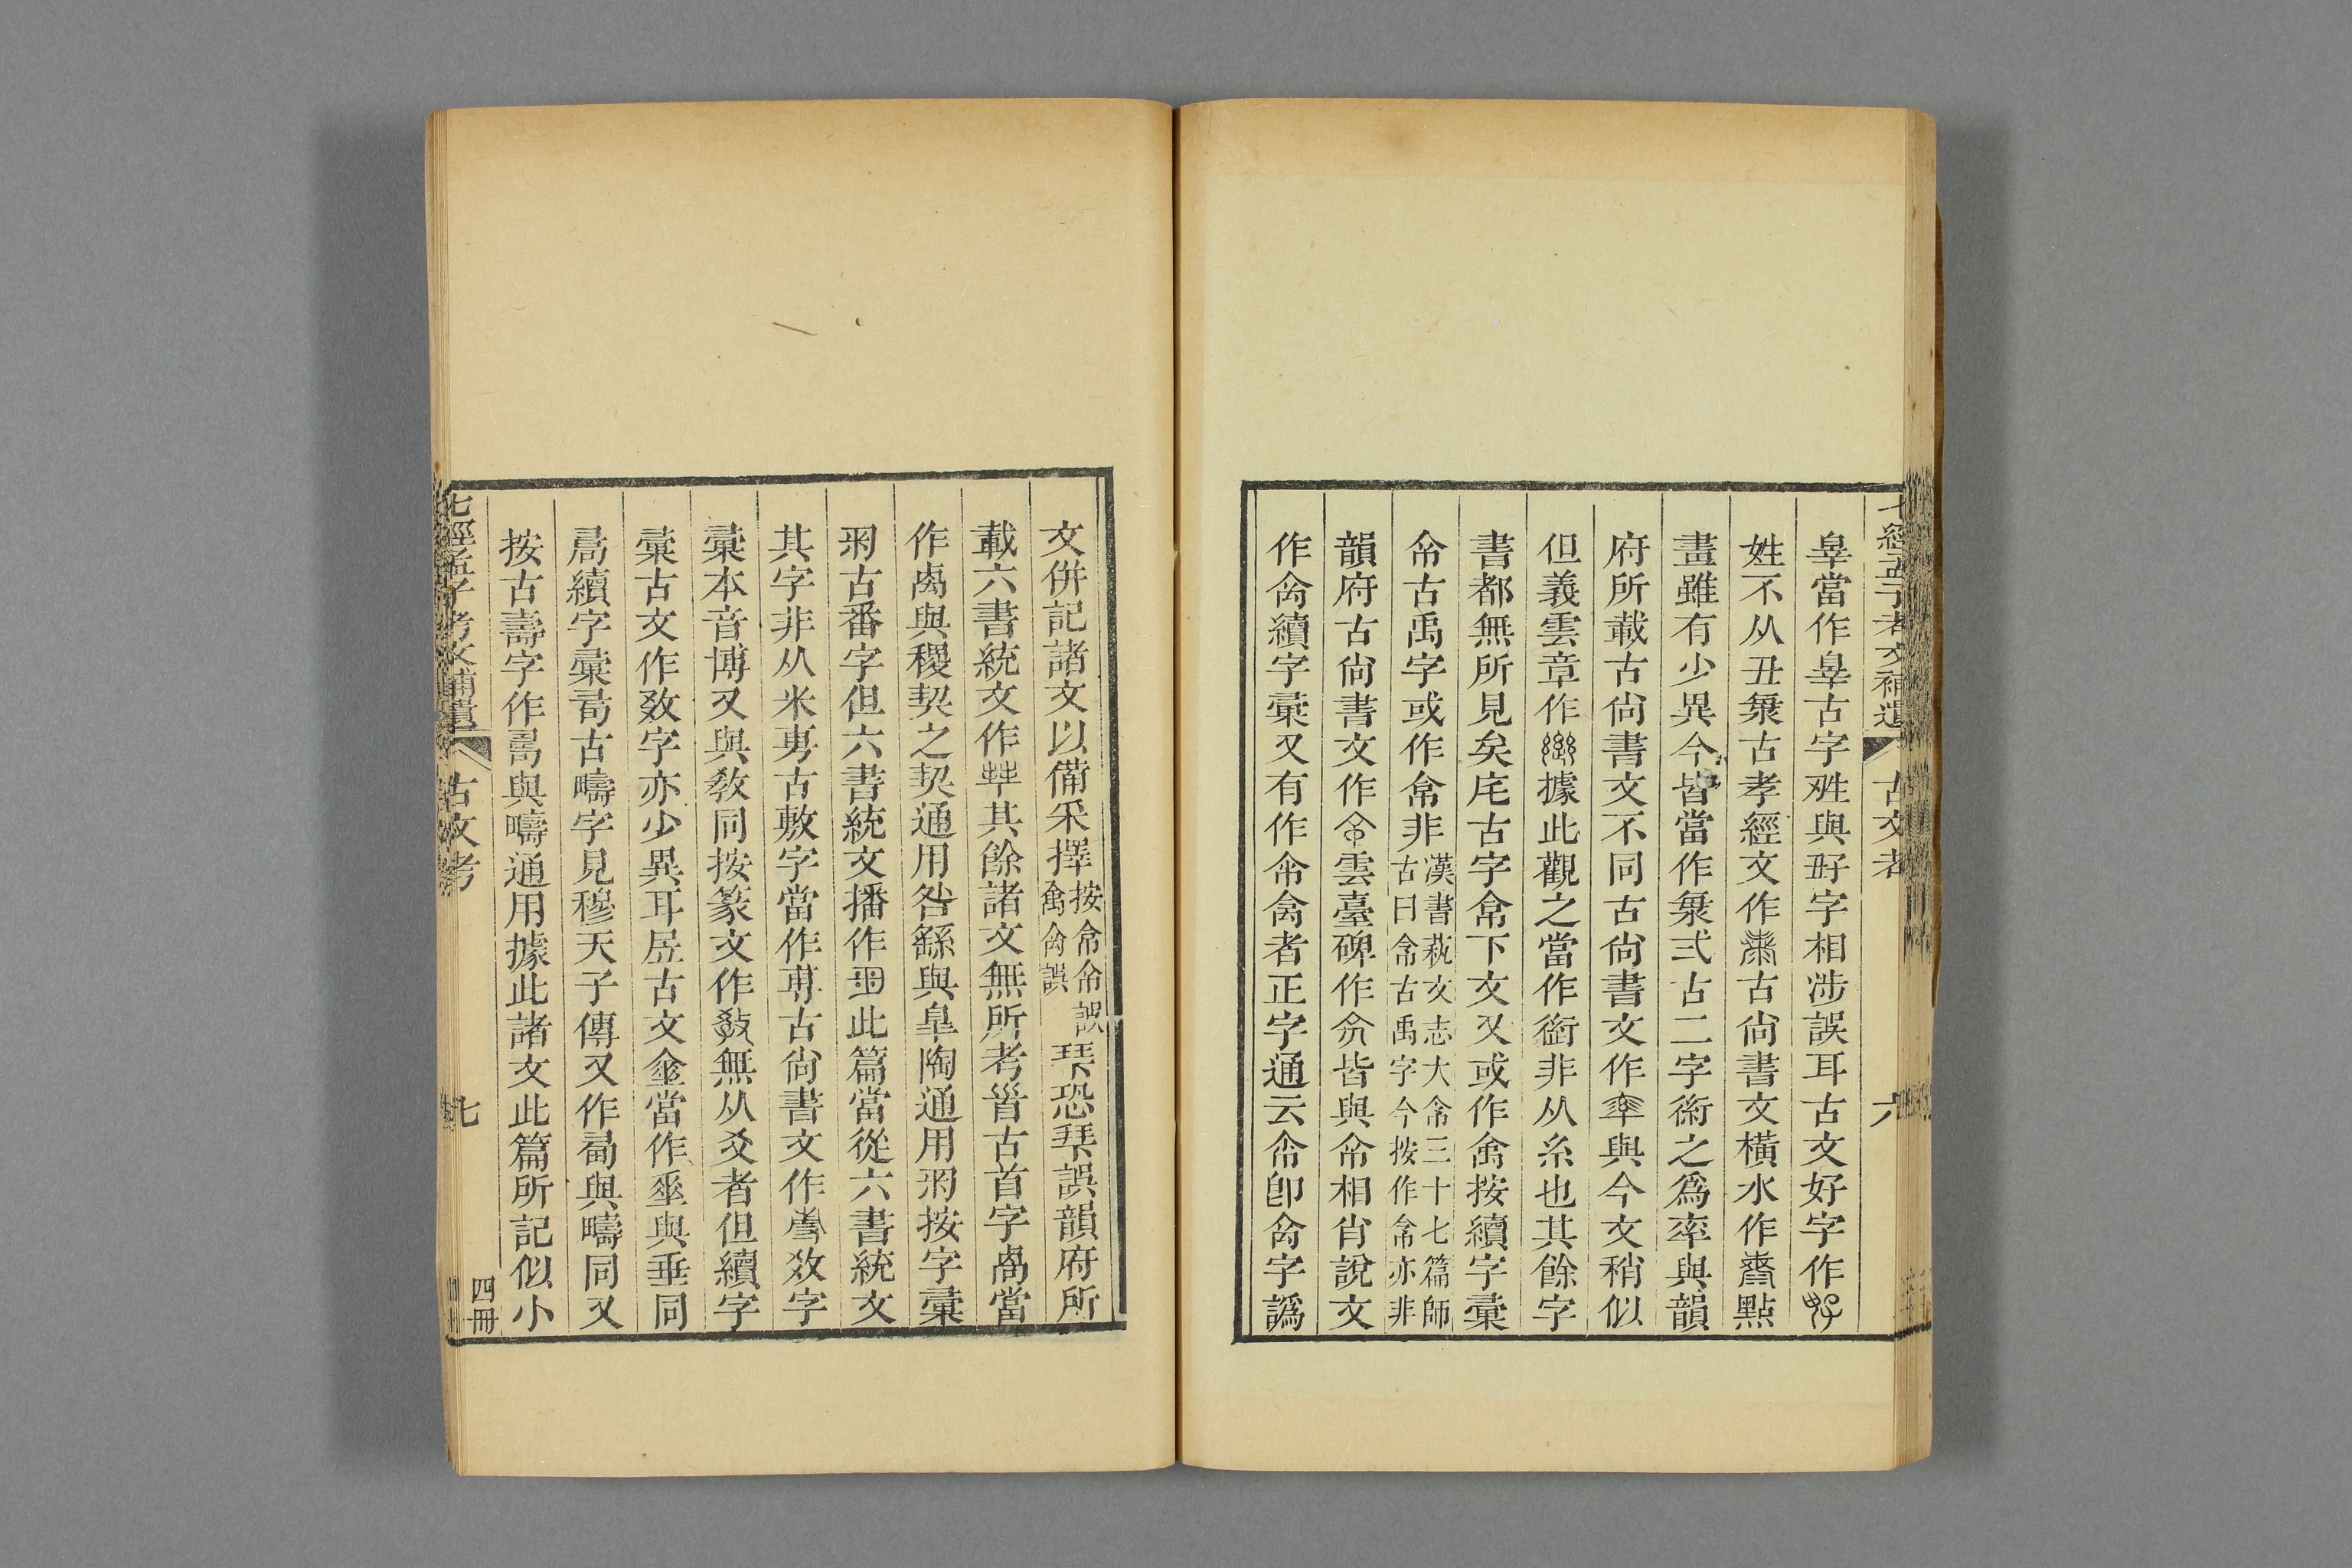 七經孟子考文補遺 古文考 六
皐當作皋古字𡛷與𡥆字相涉誤耳古文好字作
姓不从丑𠂝古孝經文作 古尚書文橫水作 㸃
畫雖有少異今皆當作 弍古二字衜之爲率與韻
府所載古尚書文不同古尚書文作 與今文稍似
但義雲章作 據此觀之當作衜非从糸也其餘字
書都無所見矣㡯古字㑒下文又或作 按續字彙
古禹字或作 非漢書蓺文志大 三十七篇師
古曰 古禹字今按作 亦非
韻府古尚書文作 雲臺碑作 皆與 相肖說文
作 續字彙又有作 禽者正字通云 卽禽字譌
文併記諸文以備采擇按 誤
誤 恐 誤韻府所
載六書統文作 其餘諸文無所考𩠐古首字 當
作卨與稷契之契通用咎繇與皐陶通用 按字彙
古番字但六書統文播作 此篇當從六書統文
其字非从米 古敷字當作 古尚書文作 效字
彙本音博又與敎同按篆文作 無从爻者但續字
彙古文作效字亦少異耳 古文 當作 與垂同
續字彙 古疇字見穆天子傳又作 與疇同又
按古壽字作 與疇通用據此諸文此篇所記似小
七經孟子考文補遺 古文考 七 四冊